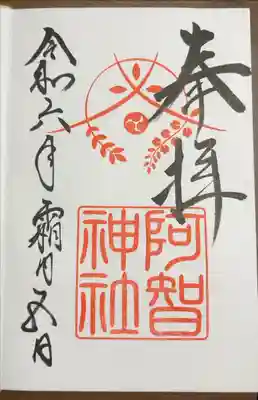 奉拝
阿智
神社
令和六年 霜月五日